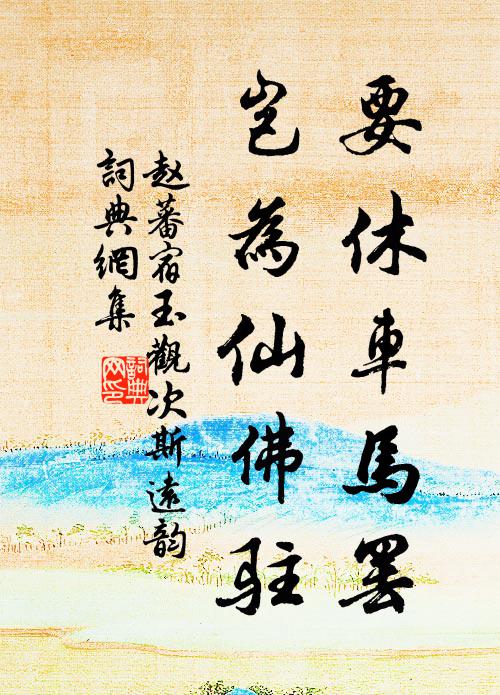 要休車馬罢
豈為仙佛駐
赵蕃宿玉觀次斯遠韵
詞典網集
詞典网印